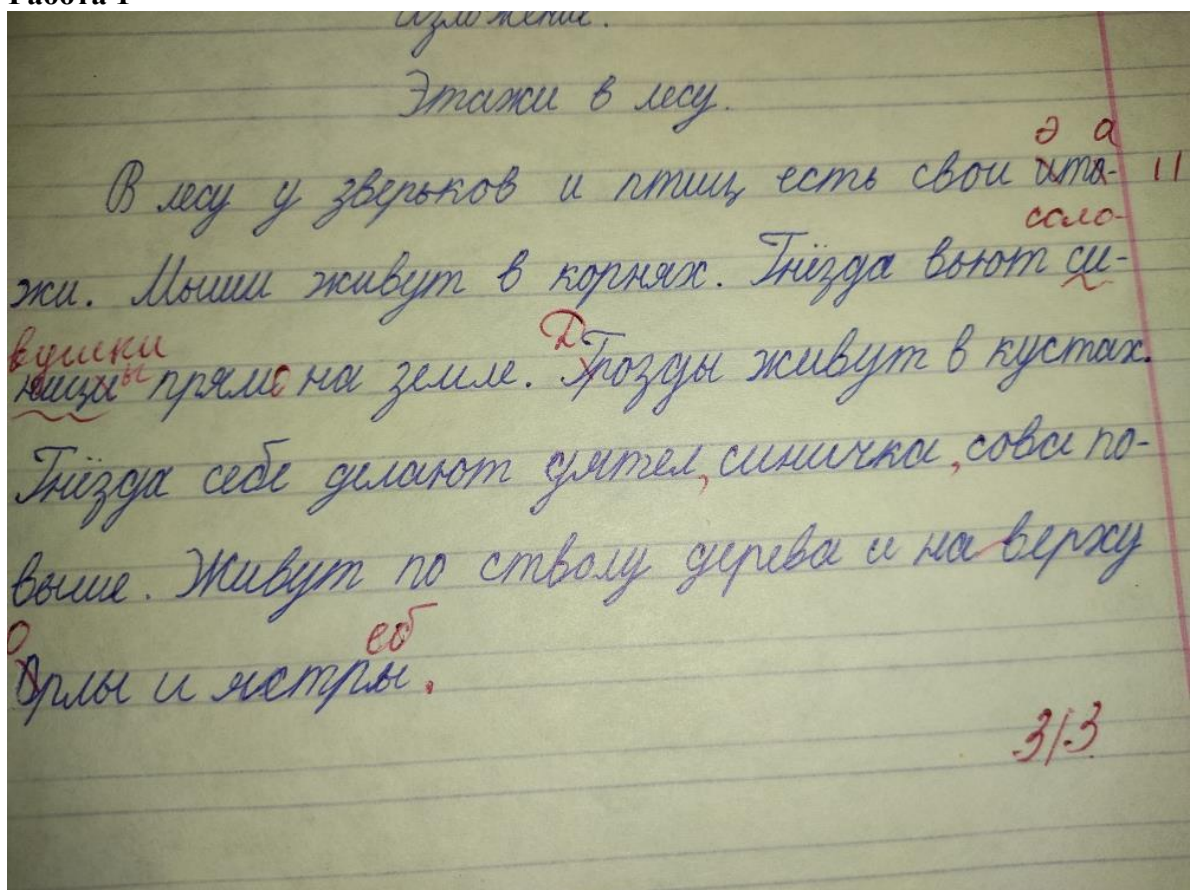 Работа 1
Изложение.
Этажи в лесу.
э а
В лесу у зверьков и птиц есть свои ито- ||
соло-
жи. Мыши живут в корнях. Гнёзда вьют си-
вушки Д
ницы прямо на земле. Грозды живут в кустах.
Гнёзда себе делают дятел, синичка, сова по-
выше. Живут по стволу дерева и на верху
о еб
Орлы и ястры.
3/3